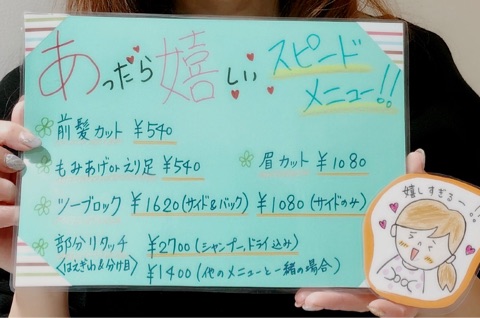 あったら嬉しい スピード
メニュー!!
前髪カット ¥540
もみあげorえり足 ¥540 眉カット ¥1080
ツーブロック ¥1620(サイド&バック) ¥1080(サイドのみ)
部分リタッチ ¥2700(シャンプー、ドライ込み)
〈はえぎわ&分け目〉 ¥1400(他のメニューと一緒の場合)
嬉しすぎるー!!